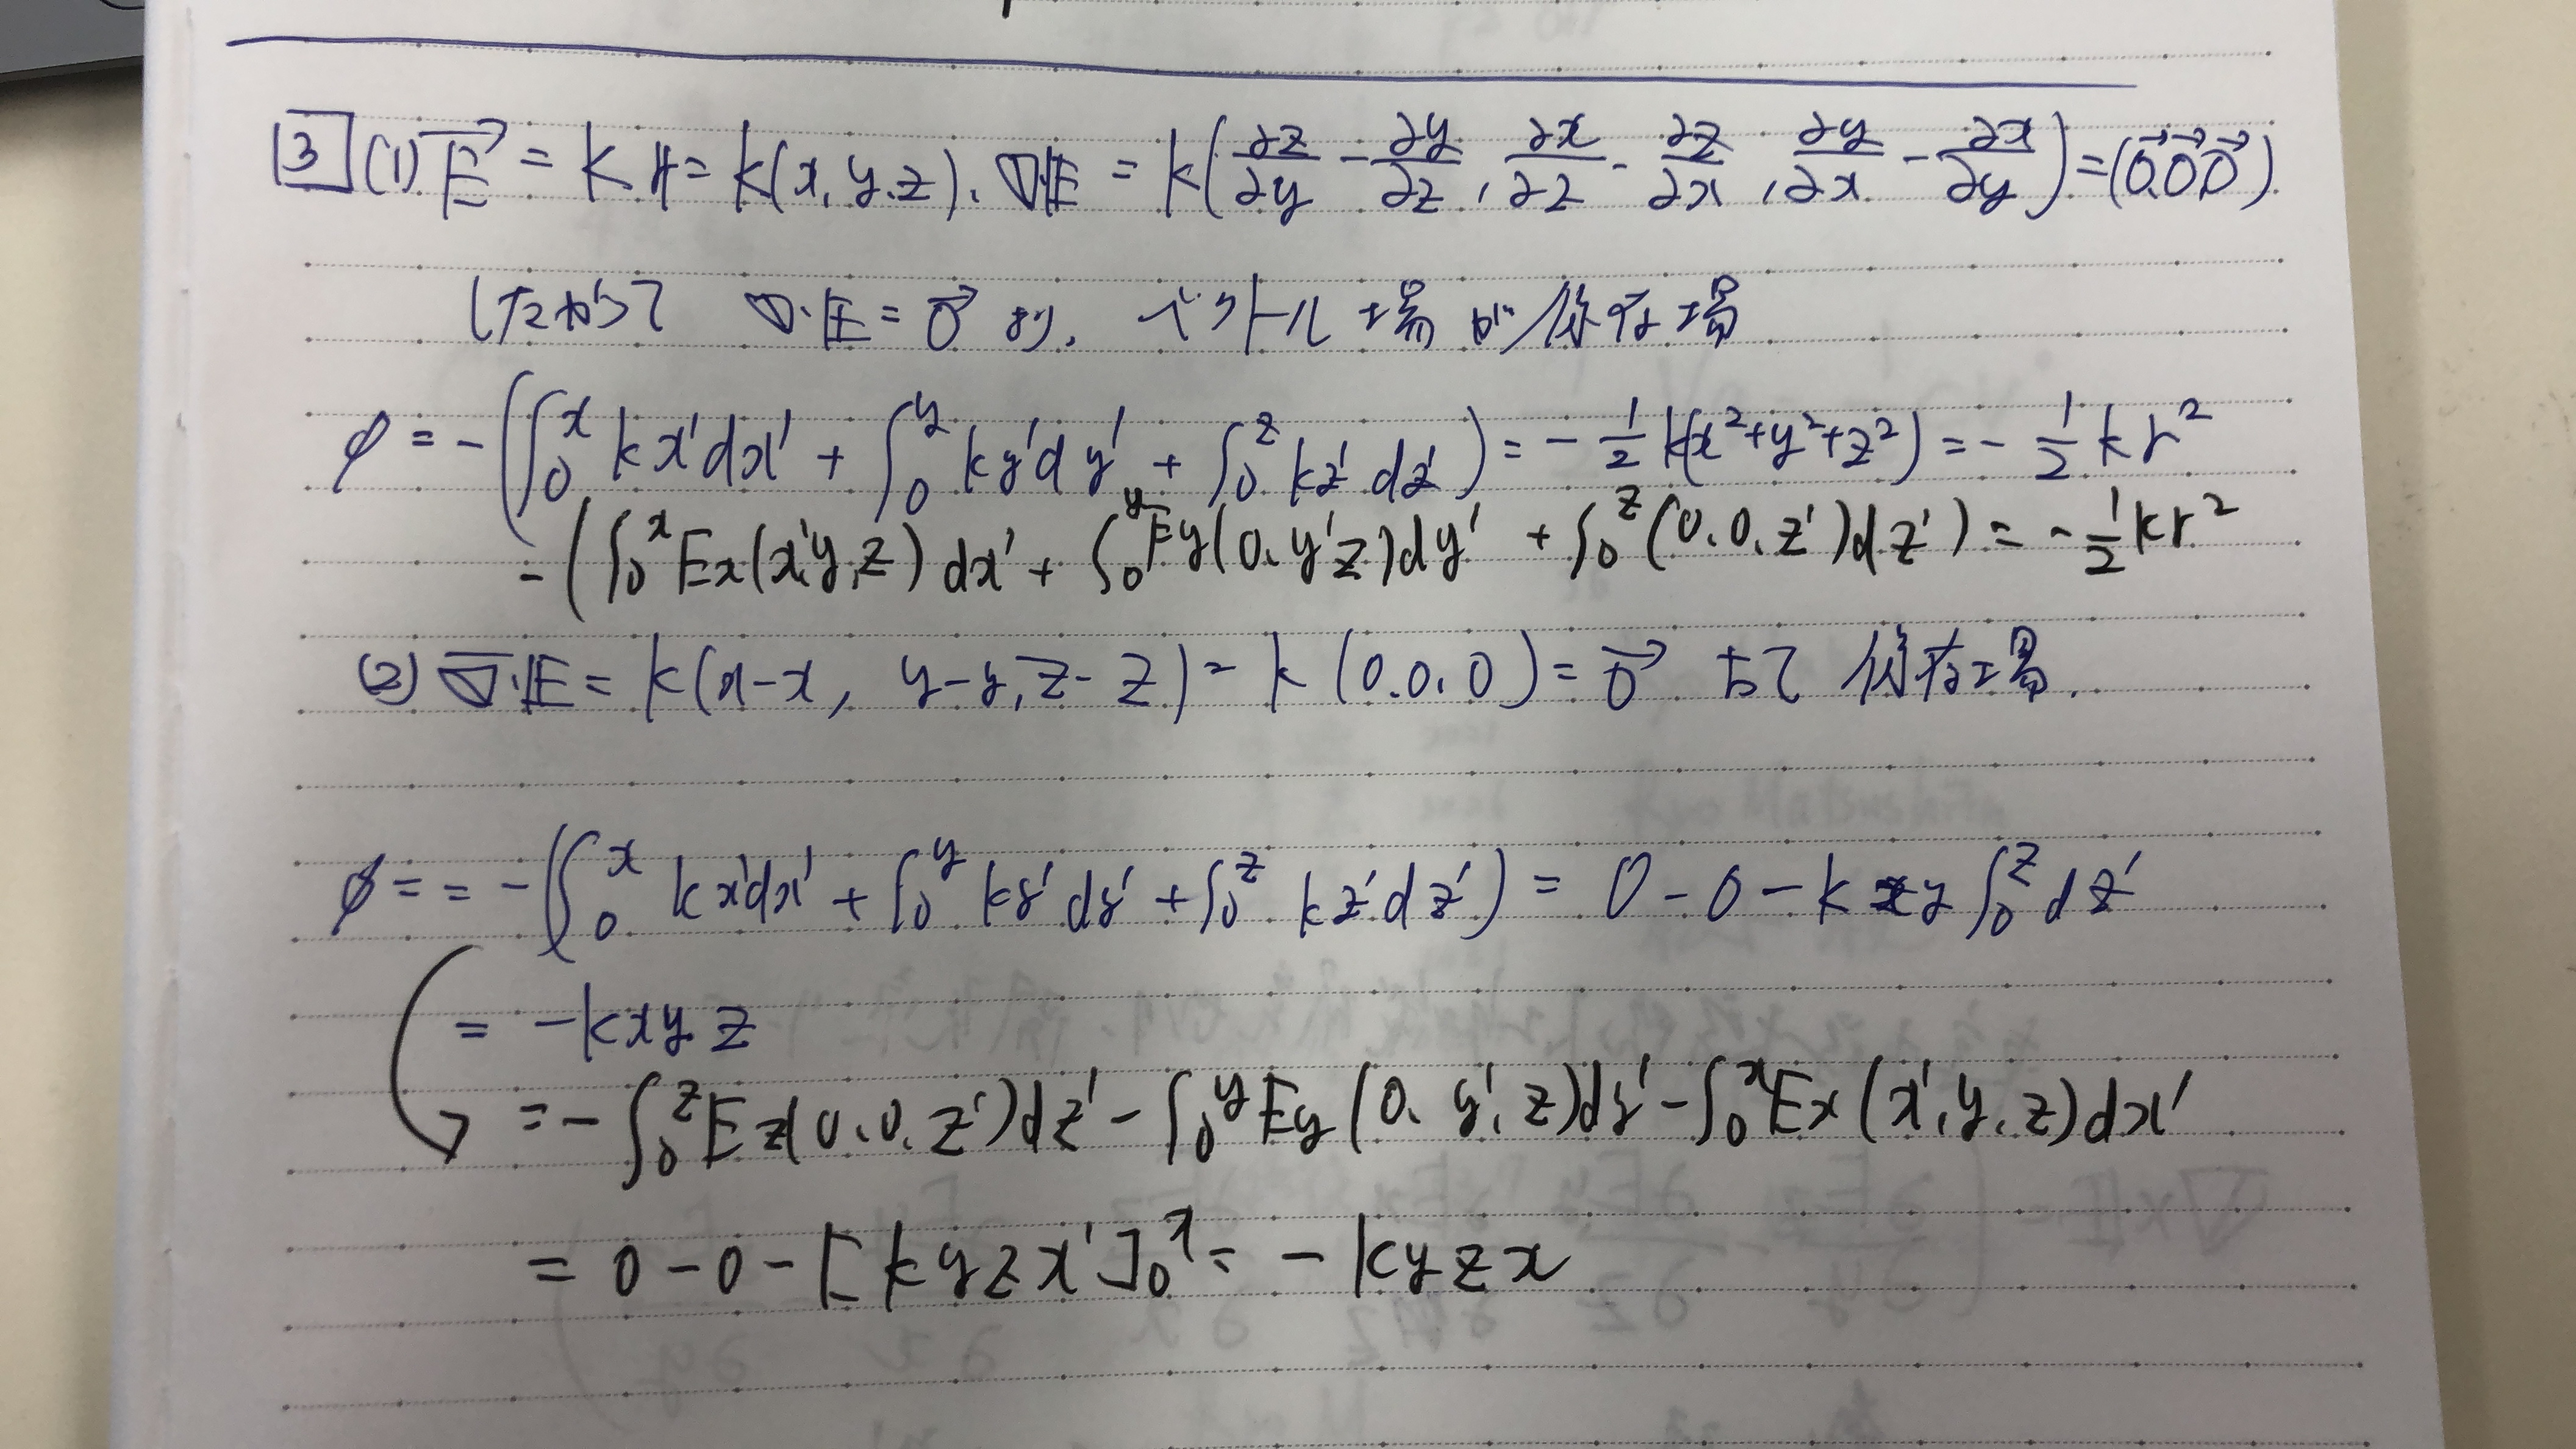 3 (1) E⃗ = k𝕣 = k(x, y, z). ∇·𝔼 = k(∂z/∂y - ∂y/∂z, ∂x/∂z - ∂z/∂x, ∂y/∂x - ∂x/∂y) = (0⃗,0⃗,0⃗)
したがって ∇·𝔼 = 0⃗ より, ベクトル場が保存場
φ = -(∫₀ˣ kx'dx' + ∫₀ʸ ky'dy' + ∫₀ᶻ kz'dz') = -1/2 k(x²+y²+z²) = -1/2 kr²
-(∫₀ˣ Ex(x'y,z)dx' + ∫₀ʸ Ey(0,y'z)dy' + ∫₀ᶻ(0,0,z')dz') = -1/2 kr²
(2) ∇·𝔼 = k(x-x, y-y, z-z) = k(0.0.0) = 0⃗ よって 保存場.
φ = = -(∫₀ˣ kx'dx' + ∫₀ʸ ky'dy' + ∫₀ᶻ kz'dz') = 0-0-kxy∫₀ᶻdz'
= -kxyz
= -∫₀ᶻ Ez(0.0.z')dz' - ∫₀ʸ Ey(0, y', z)dy' - ∫₀ˣ Ex(x', y, z)dx'
= 0-0-[kyzx']₀ˣ = -kyzx